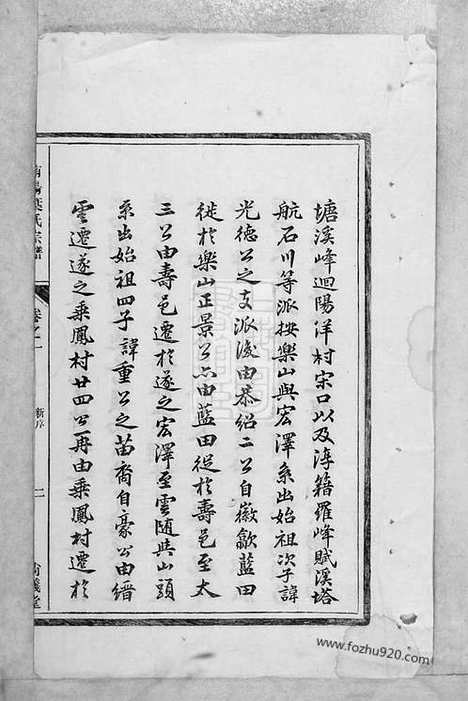 塘溪峰迴陽洋村宋口以及淳籍羅峰賦溪塔
航石川等派按樂山與宏澤系出始祖次子諱
光德公之支派後由恭紹二公自徽歙藍田
徙於樂山正景公亦由藍田徙於壽邑至太
三公由壽邑遷於遂之宏澤至雲随與山頭
系出始祖四子諱重公之苗裔自豪公由缙
雲遷遂之乘鳳村廿四公再由乘鳳村遷於
南陽葉氏宗譜
卷之一
新序
二
尚義堂
www.fozhu920.com